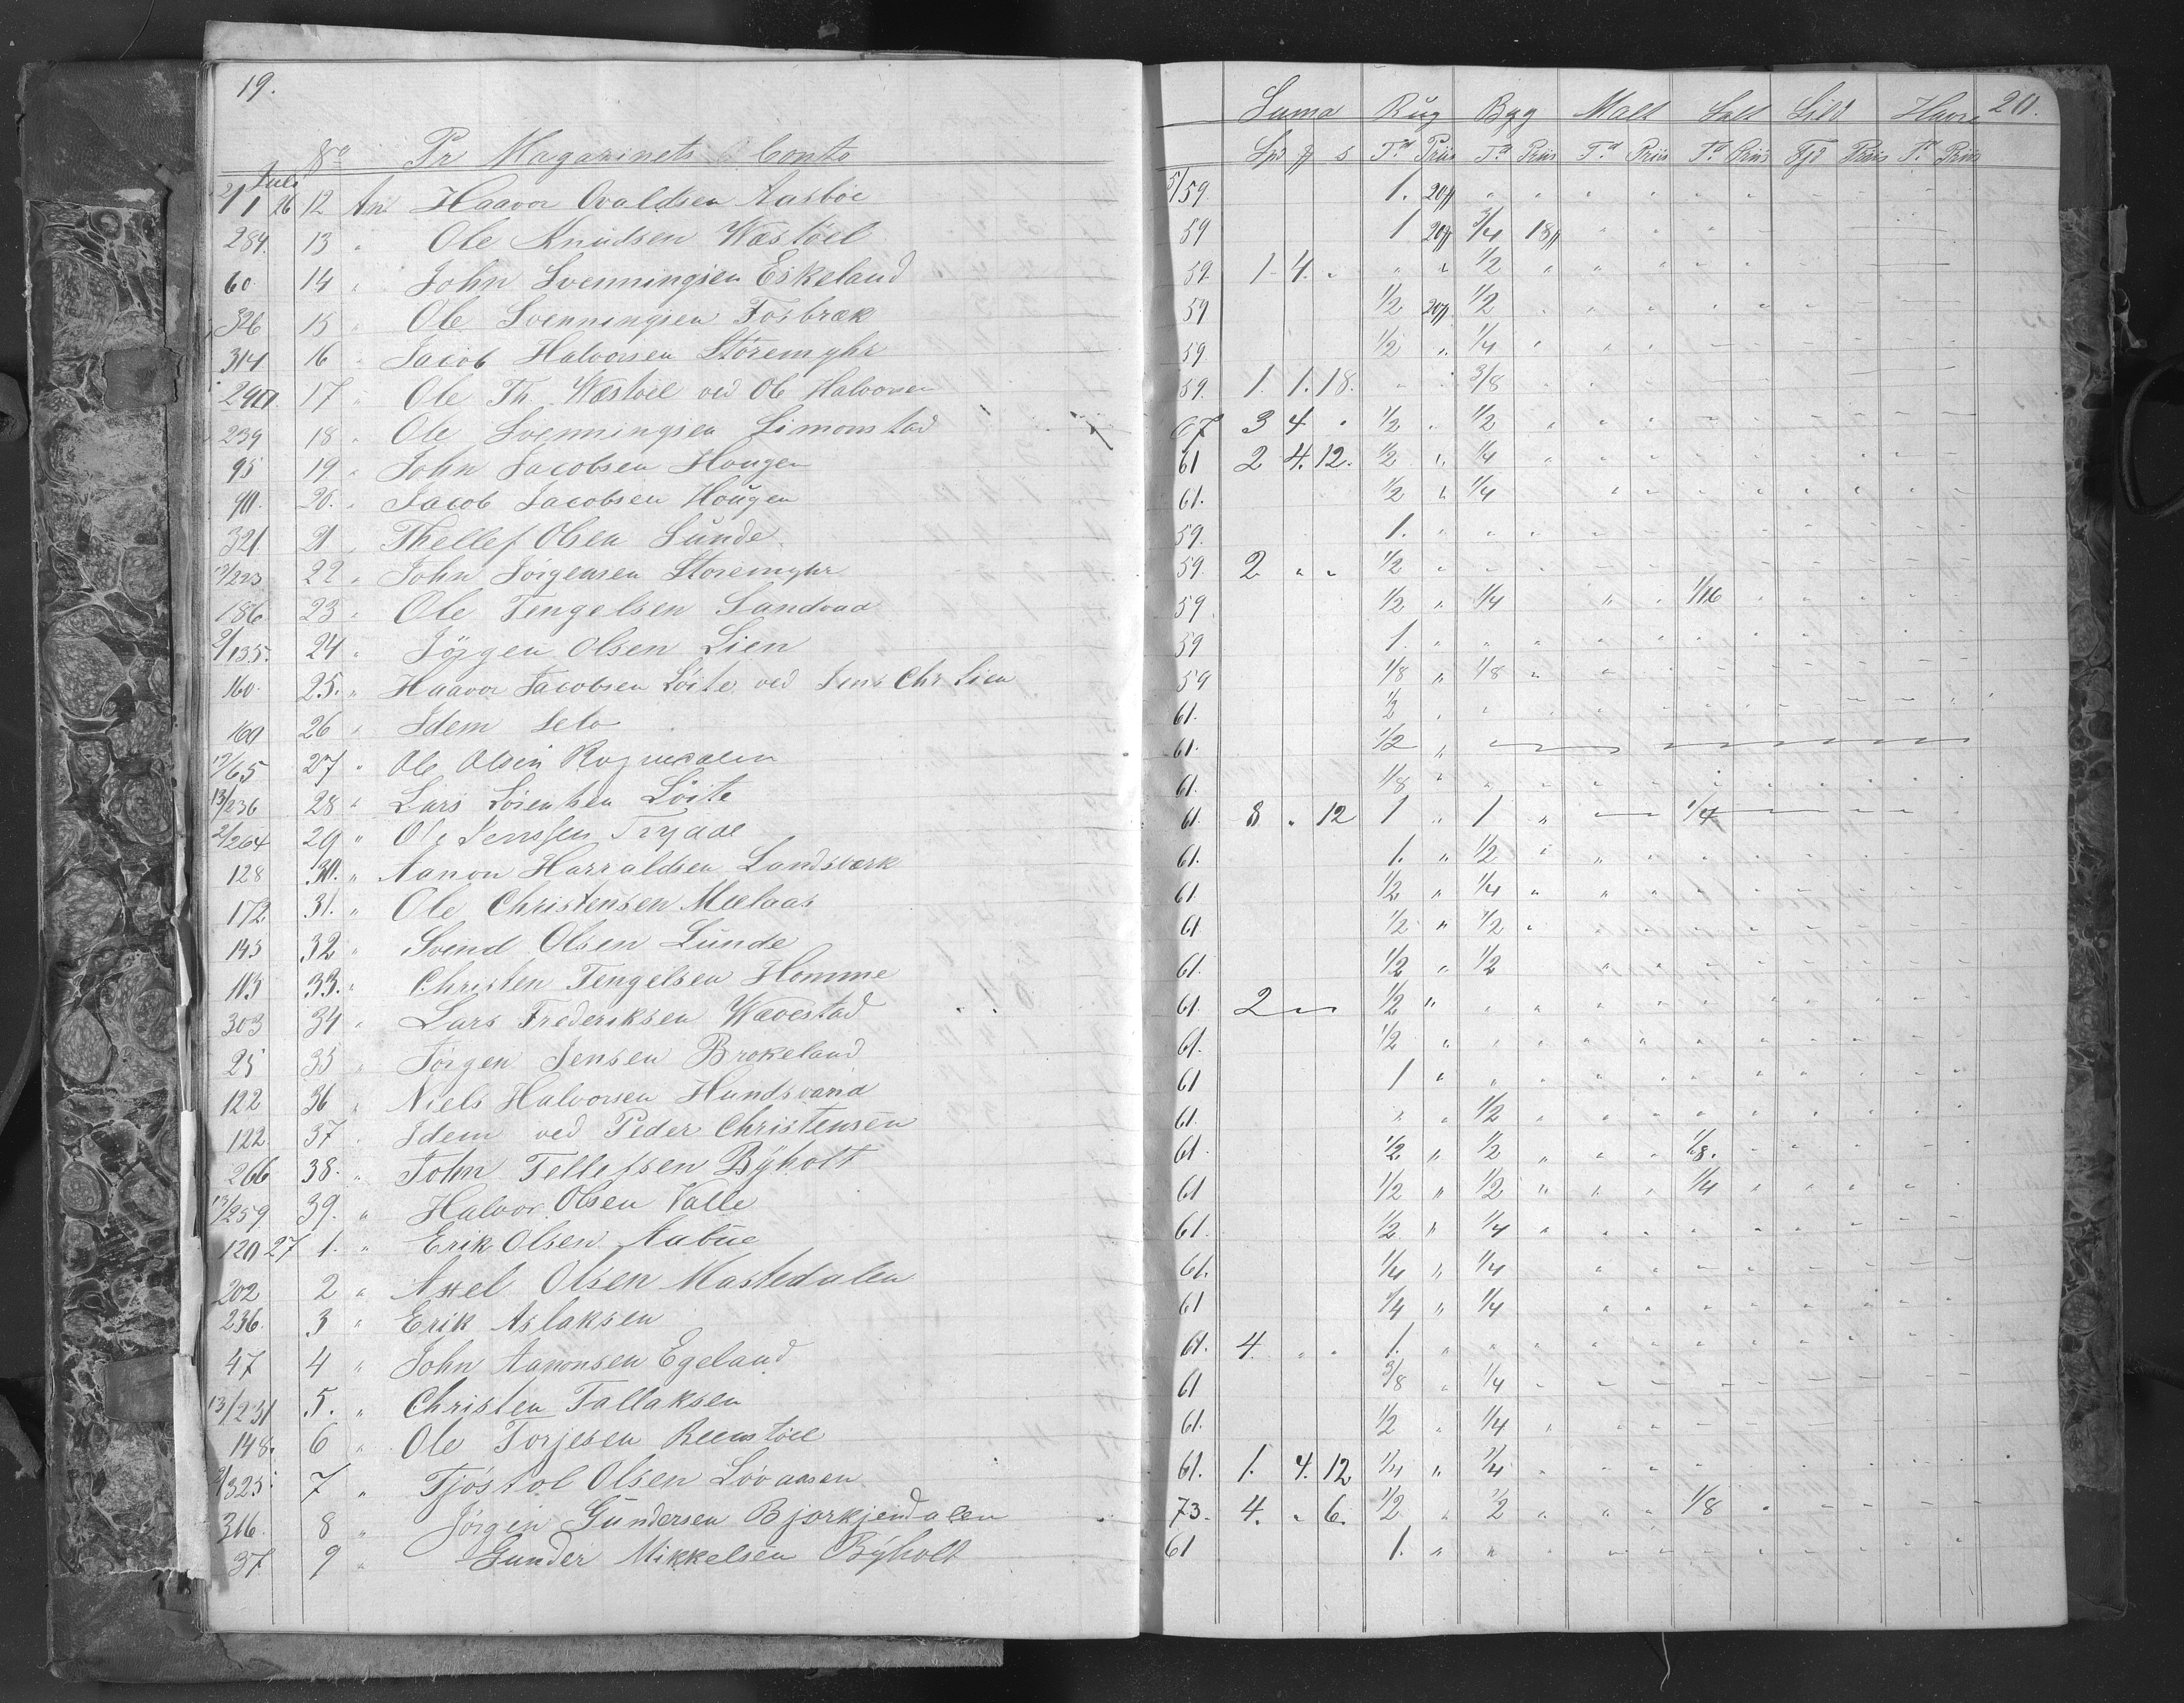 19.
Juli No Pr Magazinets Conto
2/1 26 12 An Haavor Ovaldsen Aasböe
284. 13 " Ole Knudsen Wæstöel
60 14 " John Svenningsen Eskeland
326 15 " Ole Svenningsen Fosbræk
314 16 " Jacob Halvorsen Störemyhr
290. 17 " Ole Th. Wæstöel ved Ole Halvorsen
239 18 " Ole Svenningsen Simonstad
95 19 " John Jacobsen Hougen
90. 20. " Jacob Jacobsen Hougen
321. 21 " Thellef Olsen Lunde
12/223 22 " John Jörgensen Storemyhr
186. 23 " Ole Tengelsen Landvad
2/135. 24 " Jörgen Olsen Lien
160. 25. " Haavor Jacobsen Löite ved Jens Chr Lien
160 26 " Idem Selv
12/65 27 " Ole Olsen
13/236 28 " Lars Lörentsen Löite
2/264 29 " Ole Jenssen
128 30. " Aanon Harraldsen Landsværk
172 31. " Ole Christensen Mælaas
145 32 " Svend Olsen Lunde
113 33. " Christen Tengelsen Homme
303 34 " Lars Frederiksen Wævestad
25 35 " Jörgen Jensen Brekeland
122 36 " Niels Halvorsen Hundsvand
122. 37 " Idem ved Peder Christensen
266 38. " John Tellefsen Byholt
12/259 39. " Halvor Olsen Valle
120 27 1. " Erik Olsen Aabue
202 2 " Axel Olsen Mastedalen
236. 3 " Erik Aslaksen
47 4 " John Aanonsen Egeland
13/231 5. " Christen Tallaksen
148. 6 " Ole Torjesen
2/325 7 " Tjöstol Olsen Lövaasen
316. 8 " Jörgin Gundersen Bjorkjendalen
37 9 " Gunder Mikkelsen Byholt
20.
Suma Rug Byg Malt Salt Sild Havre
Spd # s Td Priis Td Priis Td Priis Td Priis Fjd Priis Td Priis
5/59. 1. 20#
59 1 20# 3/4 18#
59. 1 4. " " " 1/2
59 1/2 20# 1/2
59. 1/2 " 1/4
59. 1. 1. 18. " " 3/8
67 3 4 " 1/2 " 1/2
61 2 4. 12. 1/2 " 1/4
61. 1/2 " 1/4
59. 1. "
59. 2 " " 1/2
59. 1/2 " 1/4 " " 1/16
59 1. "
59 1/8 " 1/8
61. 1/2
61. 1/2 "
61. 1/8 "
61. 3 " 12 1 " 1 " 1/4
61. 1. " 1/2
61. 1/2 " 1/4
61 1/2 " 1/2
61. 1/2 " 1/2
61. 2 1/2 "
61. 1/2 "
61 1 "
61. " " 1/2
61. 1/2 " 1/2 " " " 1/8.
61 1/2 " 1/2 " " " 1/4
61. 1/2 " 1/4
61. 1/4 " 1/4
61 1/4 " 1/4
61. 4. " " 1. "
61 3/8 " 1/4
61. 1/2 " 1/4
61. 1. 4. 12 1/4 " 1/4
73. 4. " 6. 1/2 " 1/2 " " " 1/8
61 1. " "